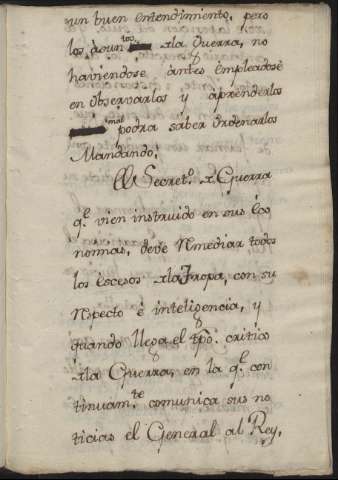 un buen entendimiento, pero
los àsuntos de la Guerra, no
haviendose antes empleadose
en observarlos y aprenderlos
mal podra saber ordenarlos
Mandando.
El Secretº. de Guerra
q.e vien instruido en sus Eco
nomias, deve Remediar todos
los escesos de la Tropa, con su
Respecto è inteligencia, y
quando llega el tpo. critico
de la Guerra, en la q.e con
tinuam.te comunica sus no
ticias el General al Rey,